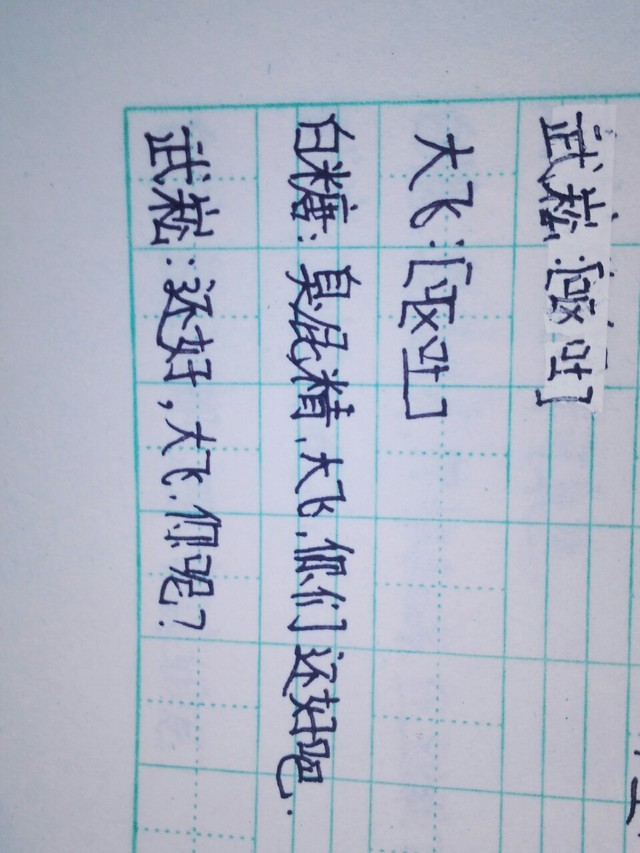 武崧:[呕吐]
大飞:[呕吐]
白糖:臭屁精,大飞,你们还好吧.
武崧:还好,大飞,你呢?